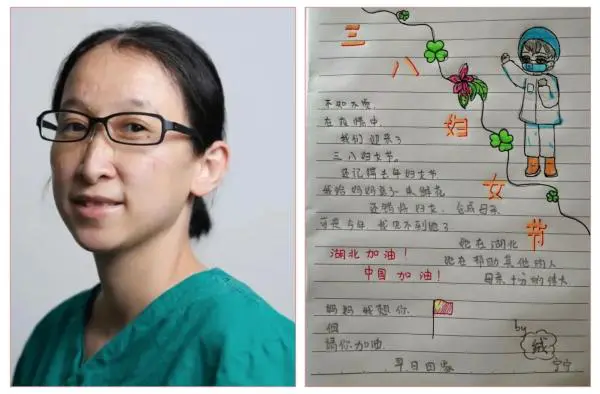 三
八
妇
女
节
不知不觉
在疫情中
我们迎来了
三八妇女节。
还记得去年妇女节
我给妈妈
鲜花
妇女、
母亲
今年我见不到她了
她在湖北
湖北加油！
她在帮助其他的人
中国加油！
母亲十分的伟大
妈妈我想你
但
请你加油
早日回家
by
宁宁